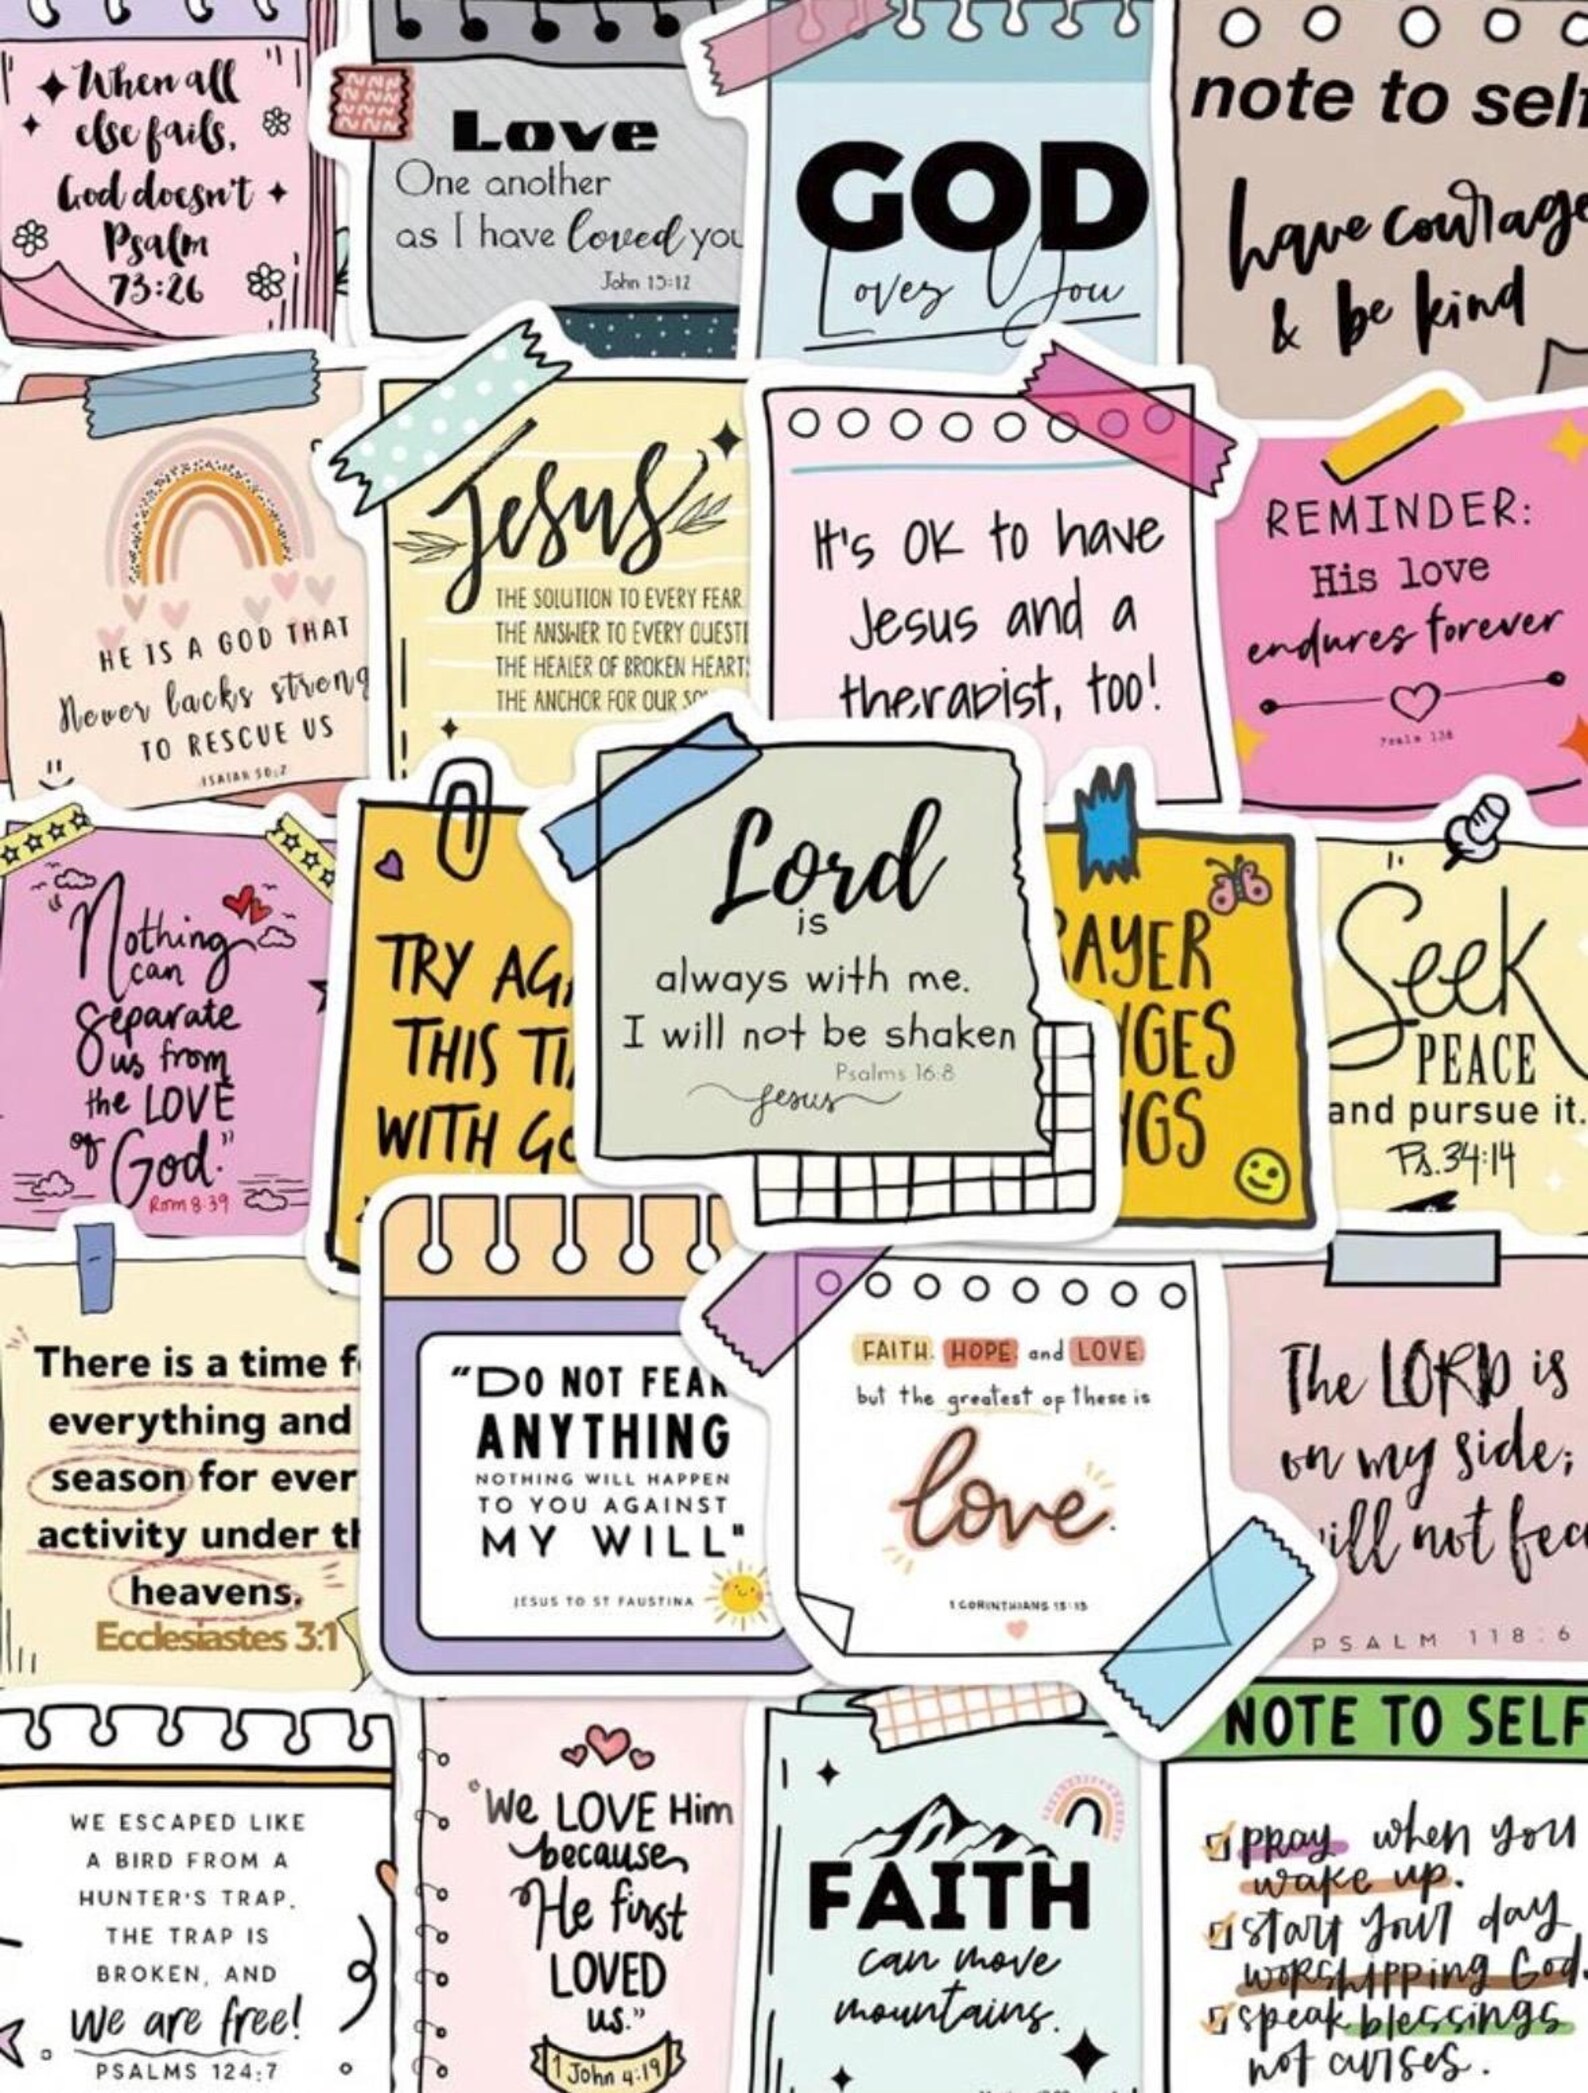 When all
else fails,
God doesn't
Psalm
73:26
Love
One another
as I have loved you
John 15:12
GOD
Loves You
note to self
have courage
& be kind
HE IS A GOD THAT
Never lacks streng
TO RESCUE US
ISAIAH 50:2
Jesus
THE SOLUTION TO EVERY FEAR
THE ANSWER TO EVERY QUESTI
THE HEALER OF BROKEN HEARTS
THE ANCHOR FOR OUR SO
It's OK to have
Jesus and a
therapist, too!
REMINDER:
His love
endures forever
Psalm 136
"Nothing
can
separate
us from
the LOVE
of God."
Rom 8:39
TRY AGA
THIS TI
WITH GO
Lord
is
always with me.
I will not be shaken
Psalms 16:8
Jesus
RAYER
NGES
NGS
Seek
PEACE
and pursue it.
Ps. 34:14
There is a time f
everything and
season for ever
activity under th
heavens.
Ecclesiastes 3:1
"DO NOT FEAR
ANYTHING
NOTHING WILL HAPPEN
TO YOU AGAINST
MY WILL"
JESUS TO ST FAUSTINA
FAITH. HOPE and LOVE.
but the greatest of these is
love.
1 CORINTHIANS 13:13
The LORD is
on my side;
will not fea
PSALM 118:6
WE ESCAPED LIKE
A BIRD FROM A
HUNTER'S TRAP.
THE TRAP IS
BROKEN, AND
we are free!
PSALMS 124:7
"We LOVE Him
because
He first
LOVED
us."
1 John 4:19
FAITH
can move
mountains.
NOTE TO SELF
pray when you
wake up.
start your day
worshipping God.
speak blessings
not curses.